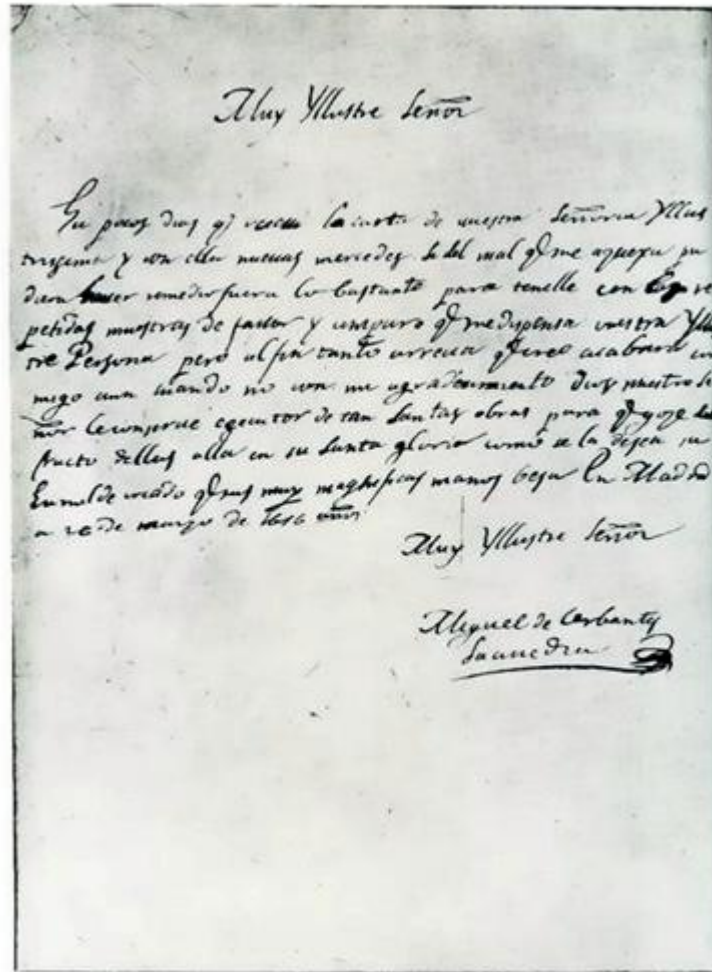 Muy Yllustre Señor
Ha pocos dias q̃ resciui la carta de vuestra Señoria Yllus
trissima y con ella nuevas mercedes si del mal q̃ me aquexa pu
diera haver remedio fuera lo bastante para tenelle con las re
petidas muestras de favor y amparo q̃ me dispensa vuestra Yllus
tre Persona pero al fin tanto arrecia q̃ creo acabara con
migo aun cuando no con mi agradecimiento Dios nuestro Se
ñor le conserve egecutor de tan santas obras para q̃ goze del
fructo dellas alla en su santa gloria como se la desea su
humilde criado q̃ sus muy magnificas manos besa En Madrid
a 26 de março de 1616 años
Muy Yllustre Señor
Miguel de Cerbantes
Saauedra